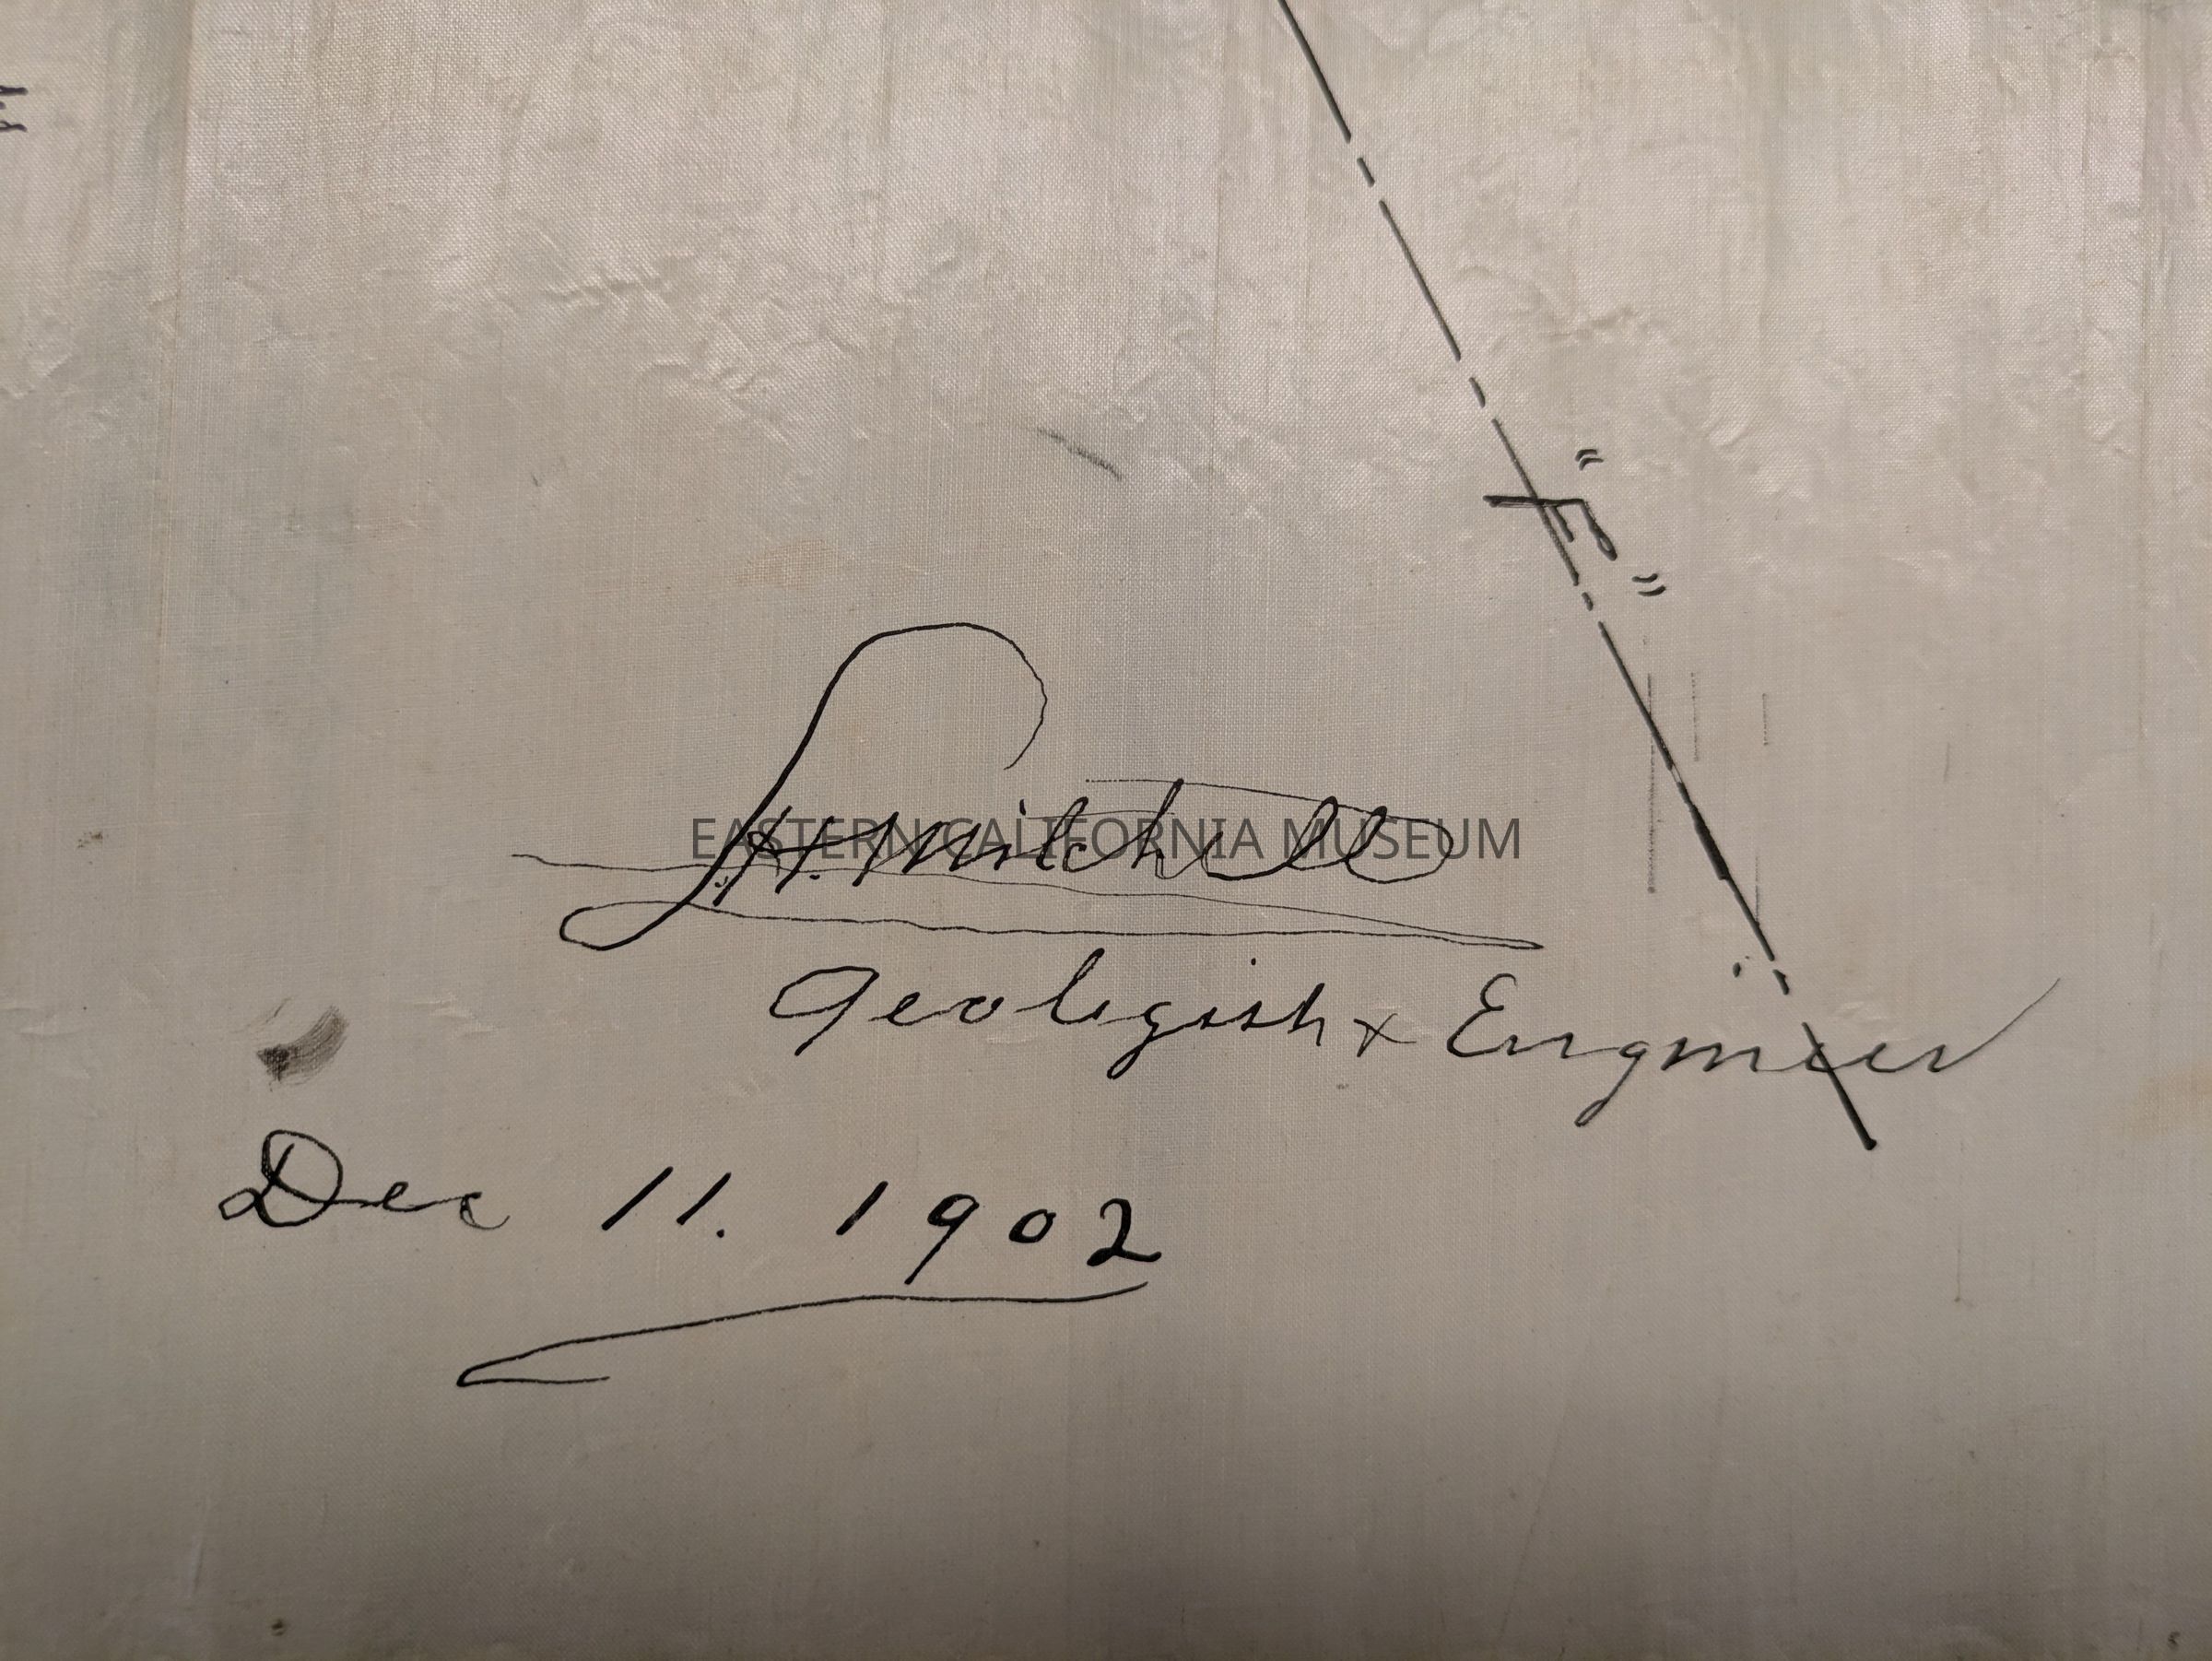 "F"
L.H. Mitchell
EASTERN CALIFORNIA MUSEUM
Geologist + Engineer
Dec 11. 1902